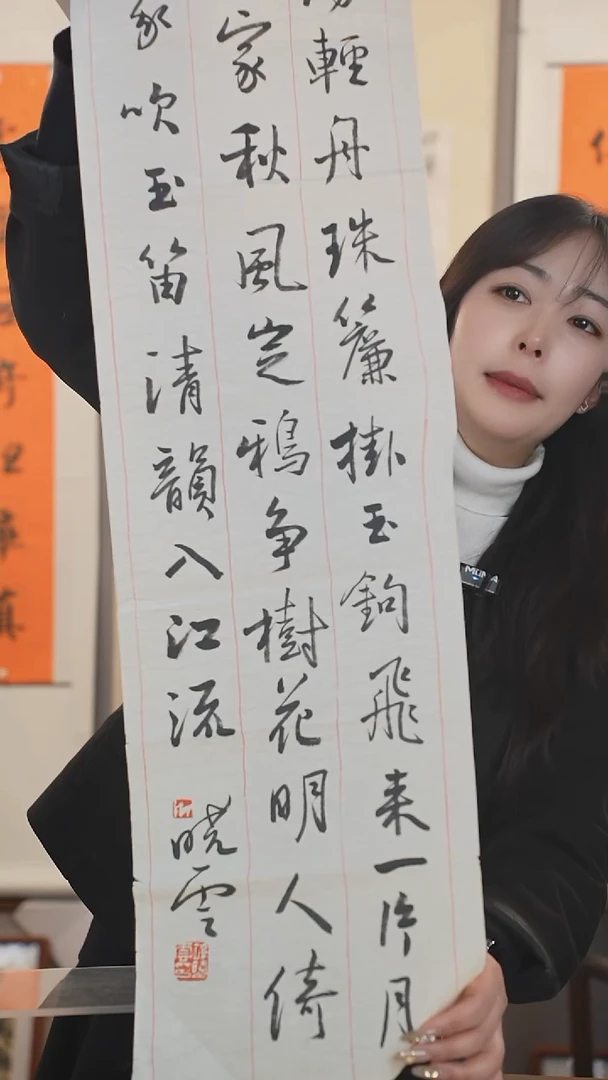 輕舟珠簾掛玉鉤飛来一片月
家秋風定鴉争樹花明人倚
家吹玉笛清韻入江流
晓雲
MOMA